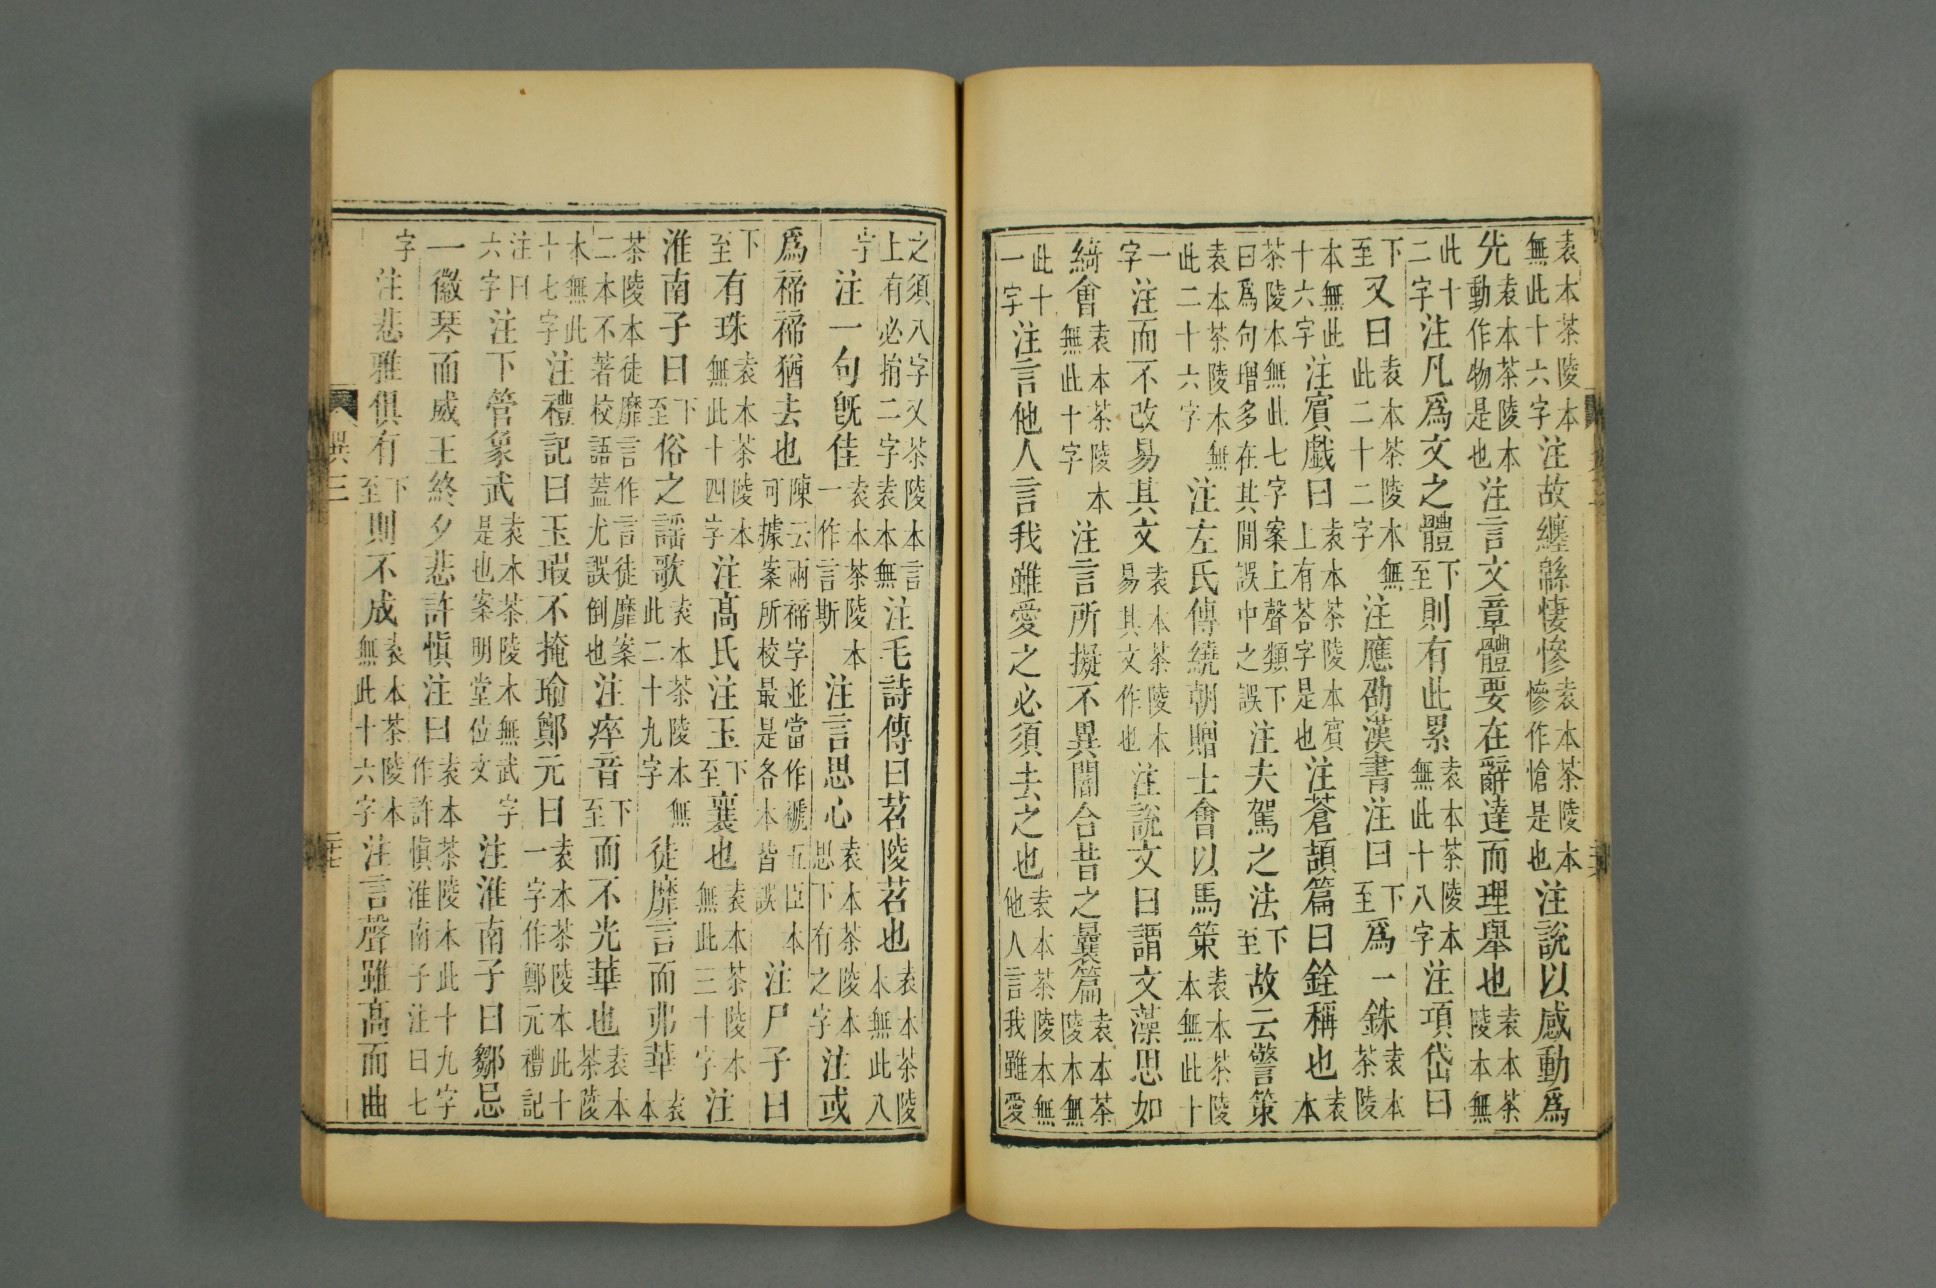 袁本茶陵本無此十六字注故纏緜悽慘袁本茶陵本慘作愴是也注說以感動爲
先袁本茶陵本動作物是也注言文章體要在辭達而理舉也袁本茶陵本無
此十二字注凡爲文之體下至則有此累袁本茶陵本無此十八字注項岱曰
下至又曰袁本茶陵本無此二十二字注應劭漢書注曰下至爲一銖袁本茶陵
本無此十六字注賓戲曰袁本茶陵本賓上有荅字是也注蒼頡篇曰銓稱也袁本
茶陵本無此七字案上聲類下曰爲句增多在其閒誤中之誤注夫駕之法下至故云警策
袁本茶陵本無此二十六字注左氏傳繞朝贈士會以馬策袁本茶陵本無此十
一字注而不改易其文袁本茶陵本易其文作也注說文曰謂文藻思如
綺會袁本茶陵本無此十字注言所擬不異闇合昔之曩篇袁本茶陵本無
此十一字注言他人言我雖愛之必須去之也袁本茶陵本無他人言我雖愛
之須八字又茶陵本言上有必捐二字袁本無注毛詩傳曰苕陵苕也袁本茶陵本無此八
字注一句旣佳袁本茶陵本一作言斯注言思心袁本茶陵本思下有之字注或
爲褅褅猶去也陳云兩褅字並當作褫五臣本可據案所校最是各本皆誤注尸子曰
下至有珠袁本茶陵本無此十四字注高氏注玉下至襄也袁本茶陵本無此三十字注
淮南子曰下至俗之謡歌袁本茶陵本無此二十九字徒靡言而弗華袁本
茶陵本徒靡言作言徒靡案二本不著校語蓋尤誤倒也注瘁音下至而不光華也袁本茶陵
本無此十七字注禮記曰玉瑕不掩瑜鄭元曰袁本茶陵本此十一字作鄭元禮記
注曰六字注下管象武袁本茶陵本無武字是也案明堂位文注淮南子曰鄒忌
一徽琴而威王終夕悲許慎注曰袁本茶陵本此十九字作許慎淮南子注曰七
字注悲雅俱有下至則不成袁本茶陵本無此十六字注言聲雖高而曲